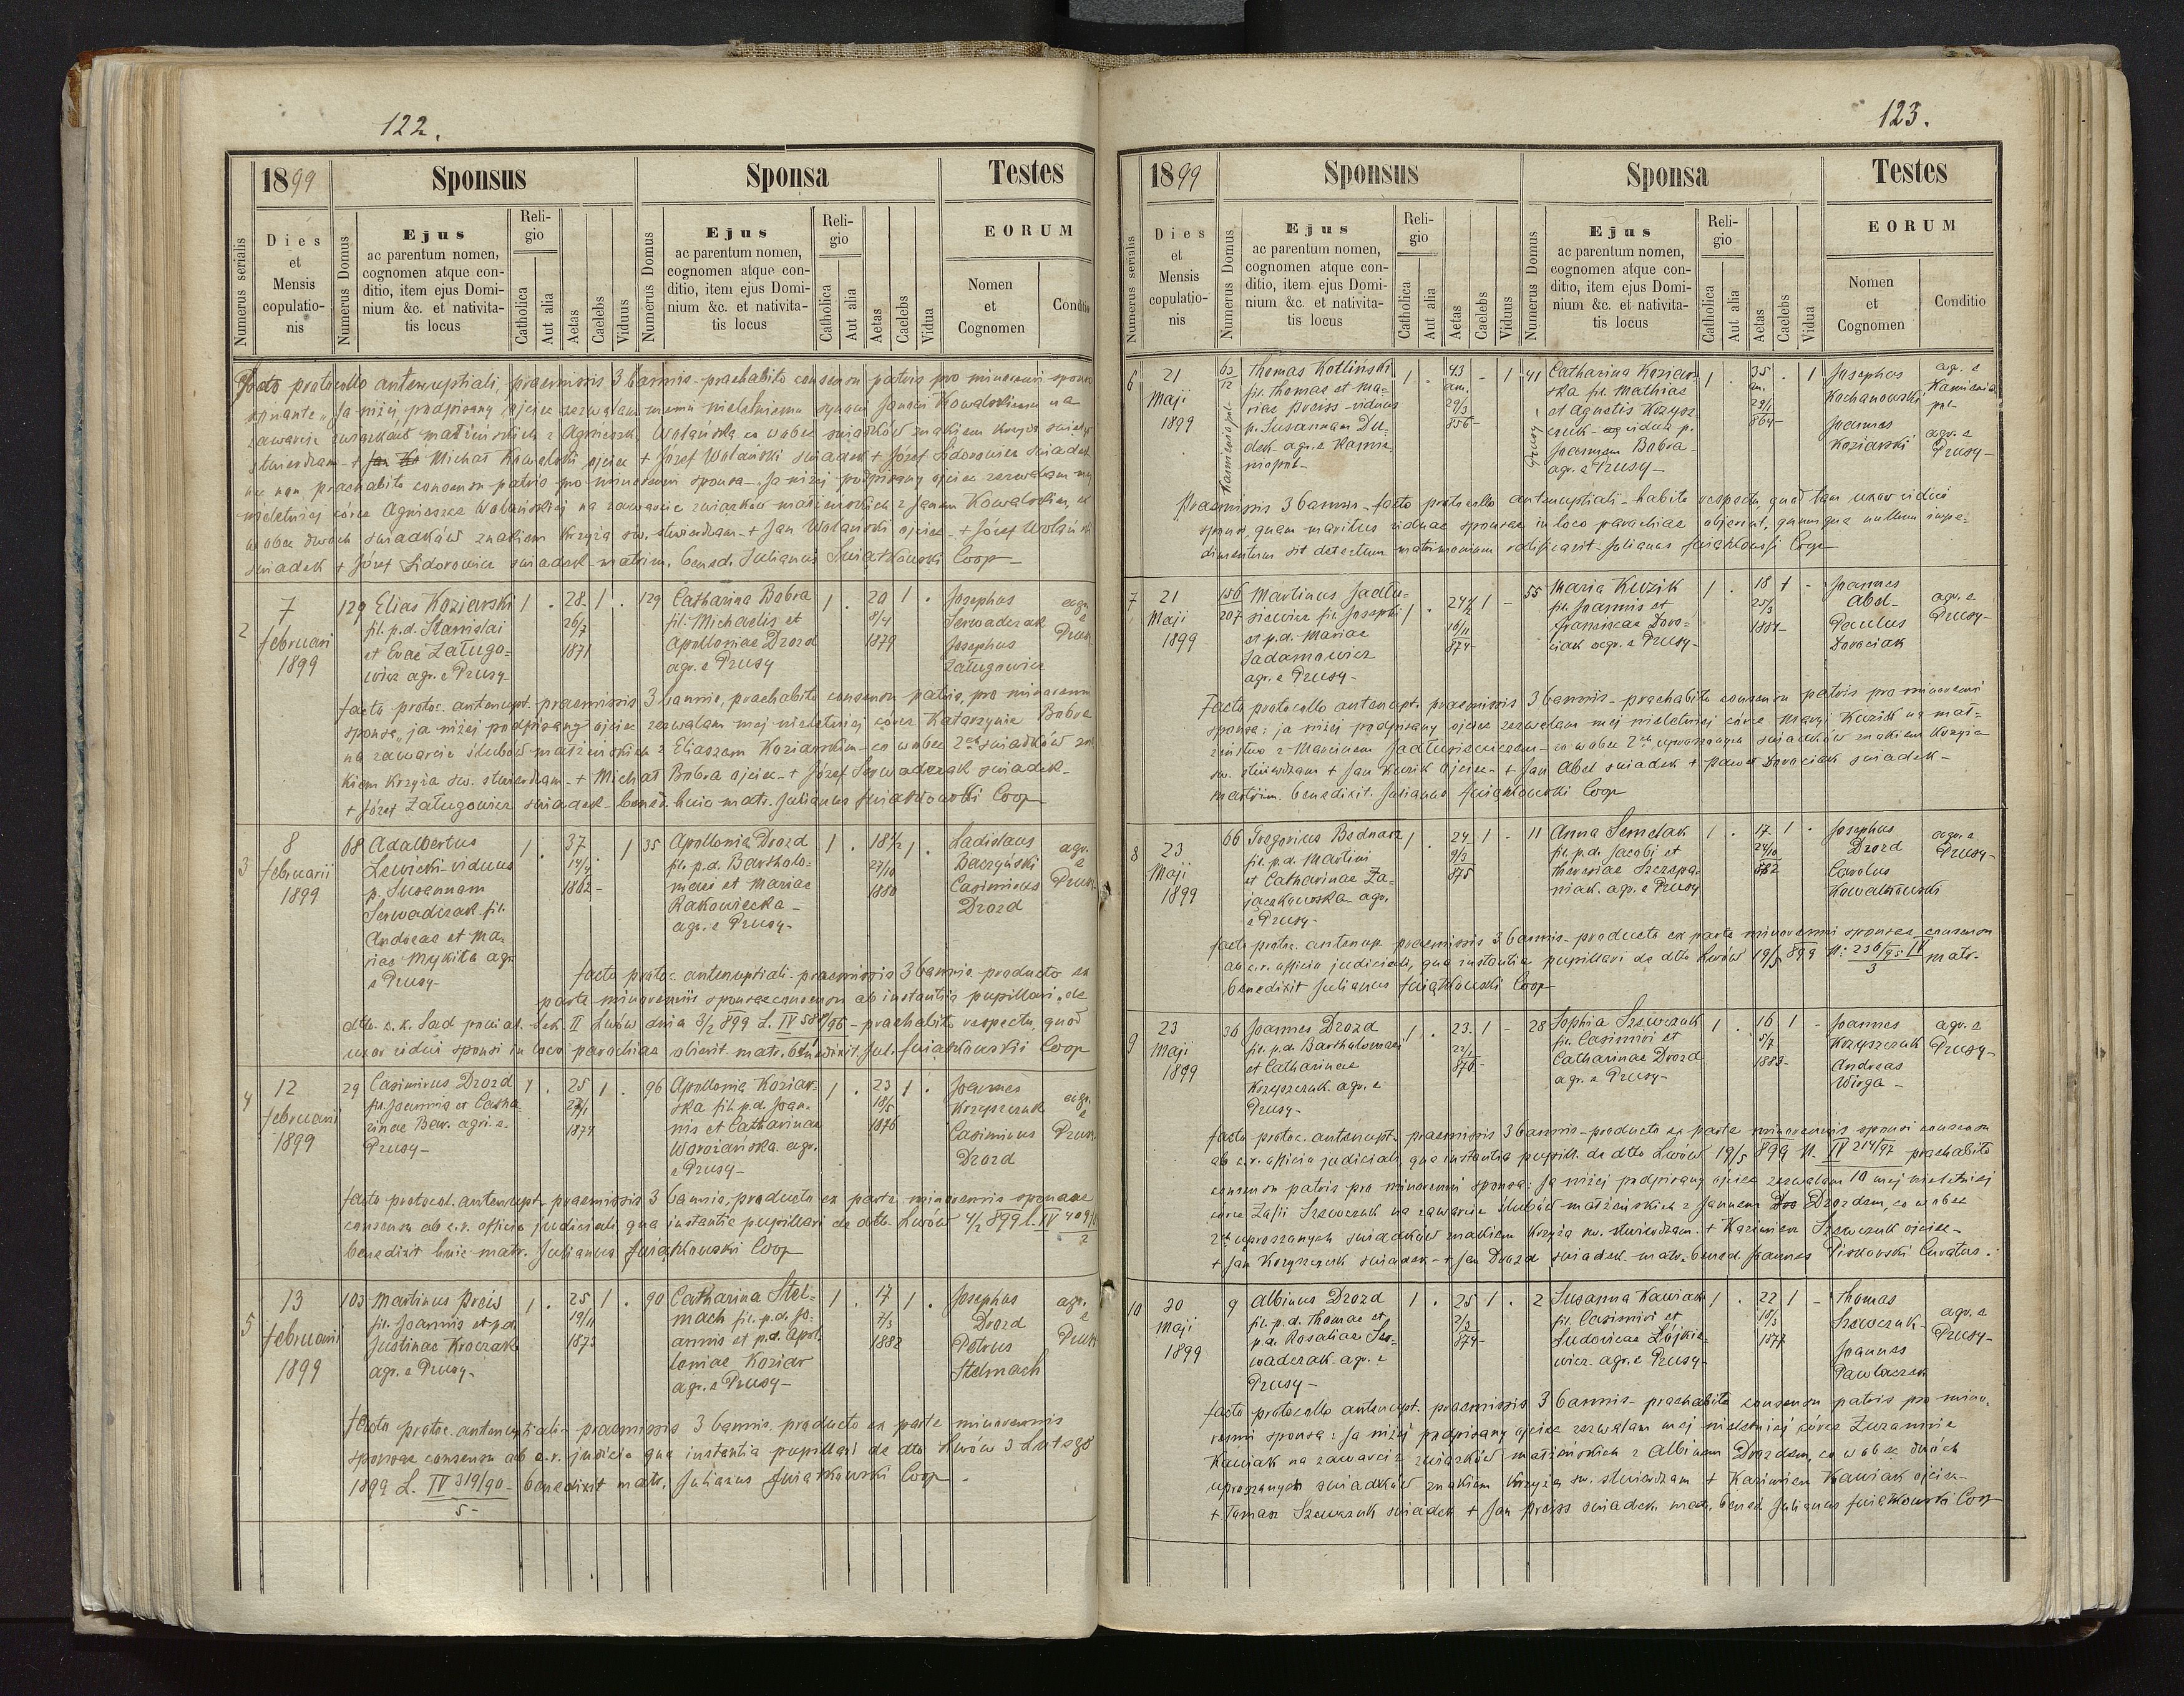 122.
1899
Sponsus
Sponsa
Testes
Numerus serialis
Dies
et
Mensis
copulatio-
nis
Numerus Domus
Ejus
ac parentum nomen,
cognomen atque con-
ditio, item ejus Domi-
nium &c. et nativita-
tis locus
Reli-
gio
Catholica
Aut alia
Aetas
Caelebs
Viduus
Numerus Domus
Ejus
ac parentum nomen,
cognomen atque con-
ditio, item ejus Domi-
nium &c. et nativita-
tis locus
Reli-
gio
Catholica
Aut alia
Aetas
Caelebs
Vidua
EORUM
Nomen
et
Cognomen
Conditio
Facto protocollo antenuptiali, praemissis 3 bannis - praehabito consensu patris pro minorenni sponso
sonante „Ja niżej podpisany ojciec zezwalam memu nieletniemu synowi Janowi Kowalskiemu na
zawarcie związków małżeńskich z Agnieszką Wolańską co wobec świadków znakiem krzyża świętego
stwierdzam - + Michał Kowalski ojciec + Józef Wolański świadek + Józef Sidorowicz świadek
nec non praehabito consensu patris pro minorenni sponsa - Ja niżej podpisany ojciec zezwalam mej
nieletniej córce Agnieszce Wolańskiej na zawarcie związków małżeńskich z Janem Kowalskim, co
wobec dwóch świadków znakiem krzyża sw. stwierdzam - + Jan Wolański ojciec - + Józef Wolański
świadek + Józef Sidorowicz świadek - matrim. bened. Julianus Swiatkowski Coop -
2
7
februari
1899
129
Elias Koziarski
fil. p.d. Stanislai
et Evae Załugo-
wicz agr. e Prusy -
1 . 28 1 .
26/7
1871
129
Catharina Bobra
fil. Michaelis et
Apolloniae Drozd
agr. e Prusy
1 . 20 1 .
8/4
1879
Josephus
Serwadczak
Josephus
Załugowicz
agr.
e
Prusy
Facto protoc. antenupt. praemissis 3 bannis, praehabito consensu patris, pro minorenni
sponsa „ja niżej podpisany ojciec zezwalam mej nieletniej córce Katarzynie Bobra
na zawarcie ślubów małżeńskich z Eliaszem Koziarskim - co wobec 2ch świadków zna
kiem krzyża sw. stwierdzam - + Michał Bobra ojciec - + Józef Serwadczak świadek -
+ Józef Załugowicz świadek - bened. huic matr. Julianus Swiatkowski Coop
3
8
februarii
1899
68
Adalbertus
Lewicki - viduus
p. Susannam
Serwadczak fil.
Andreae et Ma-
riae Mykita agr
e Prusy -
1 . 37 . 1
1862 -
35
Apollonia Drozd
fil. p.d. Bartholo-
maei et Mariae
Rakowiecka -
agr. e Prusy -
1 . 18 1/2 1 .
27/10
1880
Ladislaus
Baczyński
Casimirus
Drozd
agr.
e
Prusy
facto protoc. antenuptiali - praemissis 3 bannis producto ex
parte minorennis sponsae consensu ab instantia pupillari „de
dtto. c. k. Sąd powiat. Sek. II Lwów dnia 3/2 899 L. IV 588/96 - praehabito respectu, quod
uxor vidui sponsi in loco parochiae obierit matr. benedixit Jul. Swiatkowski Coop
4
12
februarii
1899
29
Casimirus Drozd
fil. Joannis et Catha-
rinae Bar. agr. e.
Prusy -
1 . 25 1 .
1874
96
Apollonia Koziar-
ska fil. p.d. Joan-
nis et Catharinae
Worożańska. agr.
e Prusy -
1 . 23 1 .
18/5
1876
Joannes
Krzyszczuk
Casimirus
Drozd
agr.
e
Prusy
facto protocol. antenupt - praemissis 3 bannis, producto ex parte minorennis sponsae
consensu ab c.r. officio judiciali, qua instantia pupillari de dtto Lwów 4/2 899 L. IV 409/
2
benedixit huic matr. Julianus Swiątkowski Coop
5
13
februarii
1899
103
Martinus Preis
fil. Joannis et p.d.
Justinae Kroczak
agr. e Prusy -
1 . 25 1 .
19/11
1873
90
Catharina Stel-
mach fil. p.d. Jo-
annis et p.d. Apol-
loniae Koziar
agr. e Prusy -
1 . 17 1 .
7/3
1882
Josephus
Drozd
Petrus
Stelmach
agr.
e
Prusy
Facto protoc. antenuptiali - praemissis 3 bannis. producto ex parte minorennis
sponsae consensu ab c.r. judicio qua instantia pupillari de dto Lwów 3 Lutego
1899 L. IV 319/90 - benedixit matr. Julianus Swiątkowski Coop -
5 -
123.
1899
Sponsus
Sponsa
Testes
Numerus serialis
Dies
et
Mensis
copulatio-
nis
Numerus Domus
Ejus
ac parentum nomen,
cognomen atque con-
ditio, item ejus Domi-
nium &c. et nativita-
tis locus
Reli-
gio
Catholica
Aut alia
Aetas
Caelebs
Viduus
Numerus Domus
Ejus
ac parentum nomen,
cognomen atque con-
ditio, item ejus Domi-
nium &c. et nativita-
tis locus
Reli-
gio
Catholica
Aut alia
Aetas
Caelebs
Vidua
EORUM
Nomen
et
Cognomen
Conditio
6
21
Maji
1899
Kamienopol -
Thomas Kotliński
fil. Thomae et Ma-
riae Preiss - viduus
p. Susannam Du-
dek agr. e Kamie-
niopol -
1 . 43 - 1
an.
29/3
856 -
41
Prusy
Catharina Koziar-
ska fil. Mathiae
et Agnetis Krzysz
czuk - vidua p.
Joannem Bobra -
agr. e Prusy -
1 . 35 . 1
an.
29/1
864 -
Josephus
Kochanowski
Joannes
Koziarski
agr. e
Kamienio
pol -
agr. e
Prusy -
Praemissis 3 bannis - facto protocollo antenuptiali - habito respectu, quod tam uxor vidui
sponsi, quam maritus viduae sponsae in loco parochiae obierint, quumque nullum impe-
dimentum sit detectum matrimonium ratificavit - Julianus Swiątkowski Coop
7
21
Maji
1899
156
207
Martinus Jadłu-
siewicz fil. Josephi
et p.d. Mariae
Sadamowicz
agr. e Prusy -
1 . 24 1/2 1 -
16/11
874 -
55
Maria Kuzik
fil. Joannis et
Franciscae Doro-
ciak agr. e Prusy -
1 . 18 1 -
25/3
1881 -
Joannes
Abel -
Paulus
Dorociak
agr. e
Prusy -
Facto protocollo antenupt. praemissis 3 bannis - praehabito consensu patris pro minorenni
sponsa: ja niżej podpisany ojciec zezwalam mej nieletniej córce Maryi Kuzik na mał-
żeństwo z Marcinem Jadłusiewiczem - co wobec 2ch uproszonych świadków znakiem krzyża
sw. stwierdzam + Jan Kuzik ojciec - + Jan Abel świadek + Paweł Dorociak świadek -
Matrim. benedixit. Julianus Swiątkowski Coop
8
23
Maji
1899
66
Gregorius Bednarz
fil. p.d. Martini
et Catharinae Za-
jączkowska - agr.
e Prusy -
1 . 24 1 -
9/3
875
11
Anna Semelak
fil. p.d. Jacobi et
Theresiae Szczepa-
niak. agr. e Prusy
1 . 17 1 -
24/10
882
Josephus
Drozd
Carolus
Kowalkowski
agr. e
Prusy -
facto protoc. antenup. praemissis 3 bannis - producto ex parte minorenni sponsae consensu
ab c.r. officio judiciali, qua instantia pupillari de dtto Lwów 19/5 899 N: 236/95 IV matr.
3
benedixit Julianus Swiątkowski Coop
9
23
Maji
1899
36
Joannes Drozd
fil. p.d. Bartholomaei
et Catharinae
Krzyszczuk. agr. e
Prusy -
1 . 23. 1 -
28
Sophia Szewczuk
fil. Casimiri et
Catharinae Drozd
agr. e Prusy -
1 . 16 1 -
1883 -
Joannes
Krzyszczuk
Andreas
Wirga -
agr. e
Prusy -
facto protoc. antenupt. praemissis 3 bannis - producto ex parte minorennis sponsi consensu
ab c.r. officio judiciali, qua instantia pupill. de dtto Lwów 19/5 899 N. IV 214/97 praehabito
10
consensu patris pro minorenni sponsa: Ja niżej podpisany ojciec zezwalam mej nieletniej
córce Zofii Szewczuk na zawarcie ślubów małżeńskich z Janem Drozdem, co wobec
2ch uproszonych świadków znakiem krzyża sw. stwierdzam. + Kazimierz Szewczuk ojciec -
+ Jan Krzyszczuk świadek - + Jan Drozd świadek - matr. bened. Joannes Piodowski Curatus .
10
30
Maji
1899
9
Albinus Drozd
fil. p.d. Thomae et
p.d. Rosaliae Ser-
waczak - agr. e
Prusy -
1 . 25 1 -
874 -
2
Susanna Kawiak
fil. Casimiri et
Ludovicae Łojkie-
wicz - agr. e Prusy -
1 . 22 1 -
18/3
1877
Thomas
Szewczuk -
Joannes
Pawłaczek
agr. e
Prusy -
facto protocollo antenupt. praemissis 3 bannis - praehabito consensu patris pro mino-
renni sponsa: Ja niżej podpisany ojciec zezwalam mej nieletniej córce Zuzannie
Kawiak na zawarcie związków małżeńskich z Albinem Drozdem, co wobec dwóch
uproszonych świadków znakiem krzyża sw. stwierdzam + Kazimierz Kawiak ojciec -
+ Tomasz Szewczuk świadek + Jan Preiss świadek. matr. bened. Julianus Swiątkowski Coop